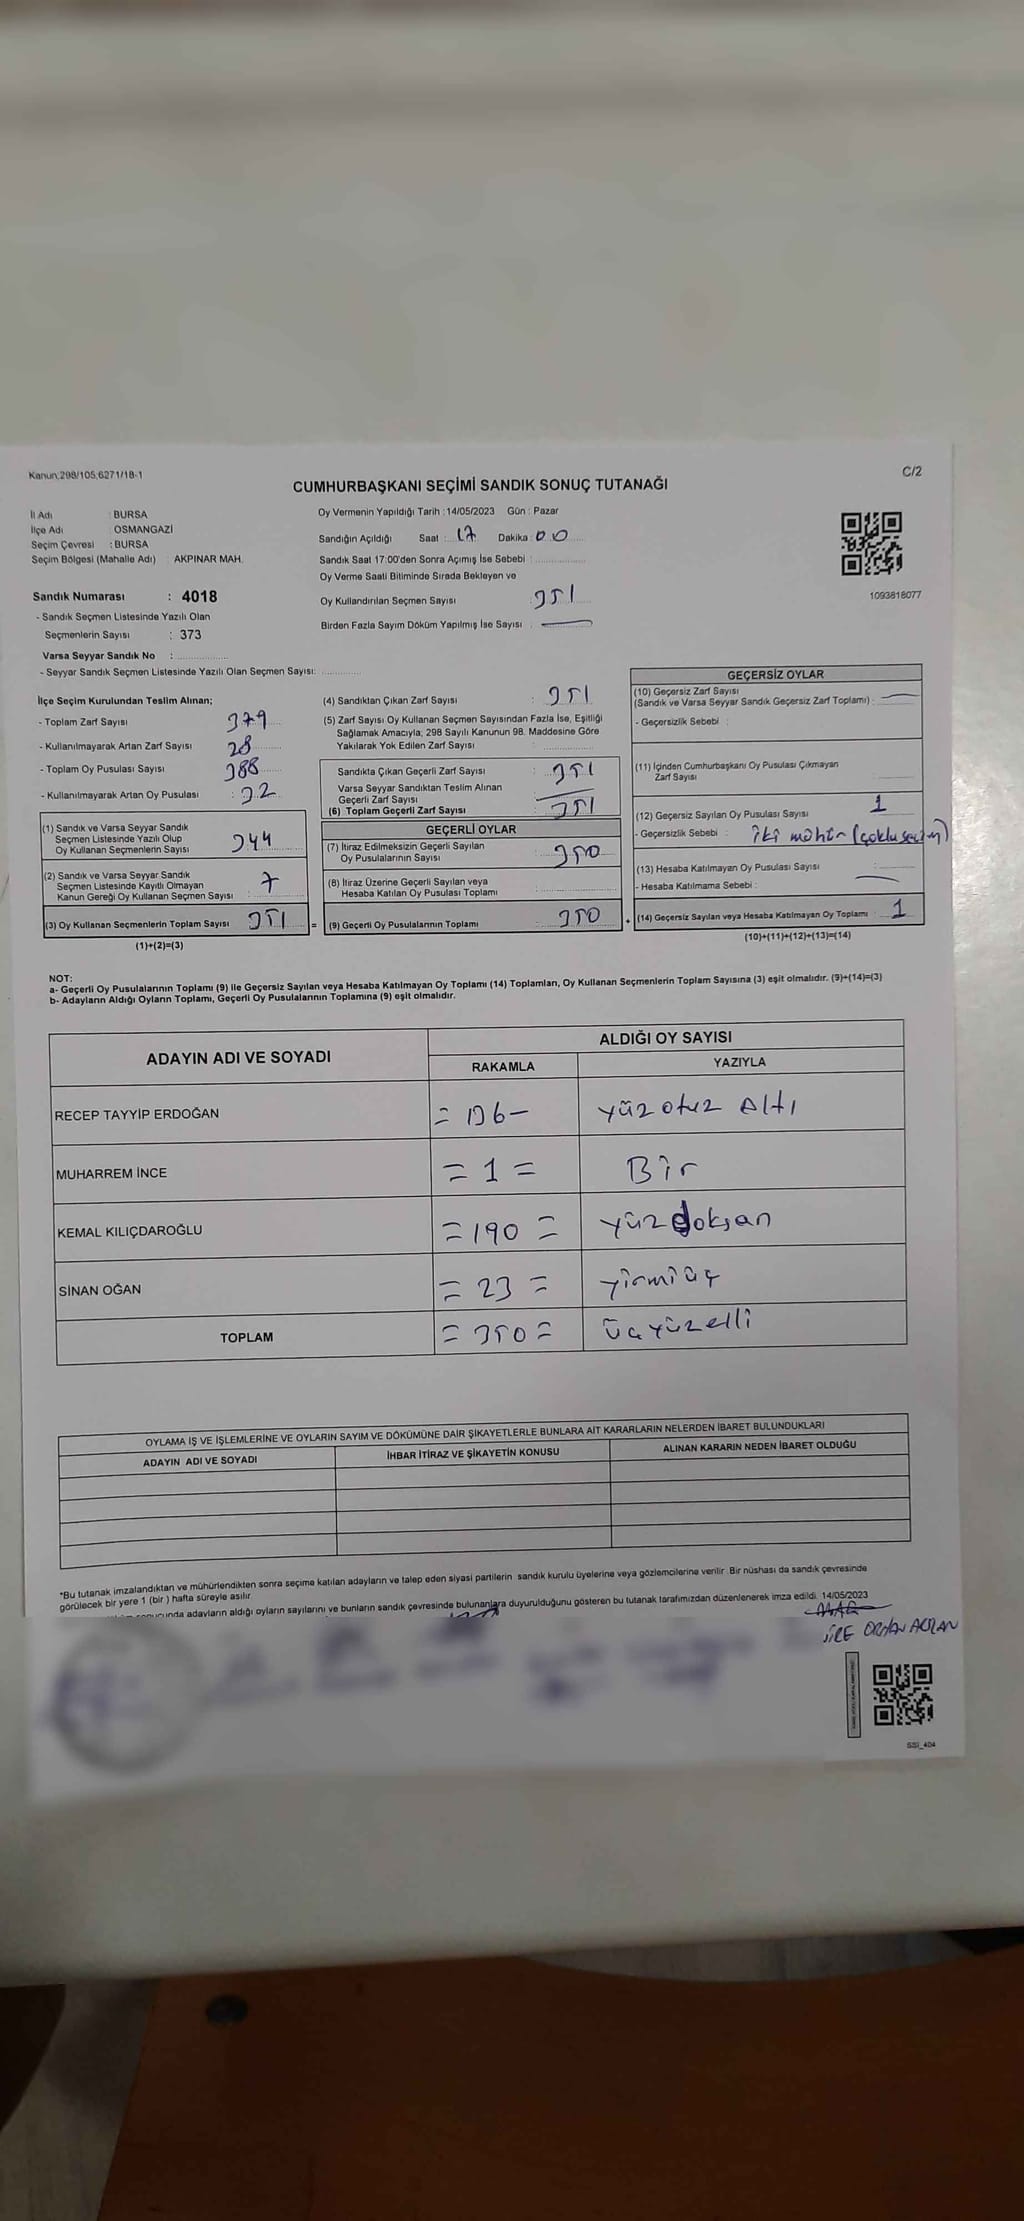 Kanun;298/105,6271/18-1
C/2
CUMHURBAŞKANI SEÇİMİ SANDIK SONUÇ TUTANAĞI
İl Adı : BURSA
İlçe Adı : OSMANGAZİ
Seçim Çevresi : BURSA
Seçim Bölgesi (Mahalle Adı) AKPINAR MAH.
Sandık Numarası : 4018
- Sandık Seçmen Listesinde Yazılı Olan
Seçmenlerin Sayısı : 373
Varsa Seyyar Sandık No :
- Seyyar Sandık Seçmen Listesinde Yazılı Olan Seçmen Sayısı:
Oy Vermenin Yapıldığı Tarih : 14/05/2023 Gün : Pazar
Sandığın Açıldığı Saat : 17 Dakika : 00
Sandık Saat 17:00'den Sonra Açımış İse Sebebi :
Oy Verme Saati Bitiminde Sırada Bekleyen ve
Oy Kullandırılan Seçmen Sayısı : 351
Birden Fazla Sayım Döküm Yapılmış İse Sayısı :
1093818077
İlçe Seçim Kurulundan Teslim Alınan;
- Toplam Zarf Sayısı : 379
- Kullanılmayarak Artan Zarf Sayısı : 28
- Toplam Oy Pusulası Sayısı : 388
- Kullanılmayarak Artan Oy Pusulası : 32
(1) Sandık ve Varsa Seyyar Sandık
Seçmen Listesinde Yazılı Olup
Oy Kullanan Seçmenlerin Sayısı : 344
(2) Sandık ve Varsa Seyyar Sandık
Seçmen Listesinde Kayıtlı Olmayan
Kanun Gereği Oy Kullanan Seçmen Sayısı : 7
(3) Oy Kullanan Seçmenlerin Toplam Sayısı 351 =
(1)+(2)=(3)
(4) Sandıktan Çıkan Zarf Sayısı : 351
(5) Zarf Sayısı Oy Kullanan Seçmen Sayısından Fazla İse, Eşitliği
Sağlamak Amacıyla, 298 Sayılı Kanunun 98. Maddesine Göre
Yakılarak Yok Edilen Zarf Sayısı :
Sandıkta Çıkan Geçerli Zarf Sayısı : 351
Varsa Seyyar Sandıktan Teslim Alınan
Geçerli Zarf Sayısı
(6) Toplam Geçerli Zarf Sayısı 351
GEÇERLİ OYLAR
(7) İtiraz Edilmeksizin Geçerli Sayılan
Oy Pusulalarının Sayısı : 350
(8) İtiraz Üzerine Geçerli Sayılan veya
Hesaba Katılan Oy Pusulası Toplamı :
(9) Geçerli Oy Pusulalarının Toplamı : 350 +
GEÇERSİZ OYLAR
(10) Geçersiz Zarf Sayısı
(Sandık ve Varsa Seyyar Sandık Geçersiz Zarf Toplamı) :
- Geçersizlik Sebebi :
(11) İçinden Cumhurbaşkanı Oy Pusulası Çıkmayan
Zarf Sayısı
(12) Geçersiz Sayılan Oy Pusulası Sayısı : 1
- Geçersizlik Sebebi : iki mühür (çoklu seçim)
(13) Hesaba Katılmayan Oy Pusulası Sayısı :
- Hesaba Katılmama Sebebi :
(14) Geçersiz Sayılan veya Hesaba Katılmayan Oy Toplamı : 1
(10)+(11)+(12)+(13)=(14)
NOT:
a- Geçerli Oy Pusulalarının Toplamı (9) ile Geçersiz Sayılan veya Hesaba Katılmayan Oy Toplamı (14) Toplamları, Oy Kullanan Seçmenlerin Toplam Sayısına (3) eşit olmalıdır. (9)+(14)=(3)
b- Adayların Aldığı Oyların Toplamı, Geçerli Oy Pusulalarının Toplamına (9) eşit olmalıdır.
ADAYIN ADI VE SOYADI ALDIĞI OY SAYISI
RAKAMLA YAZIYLA
RECEP TAYYİP ERDOĞAN = 136 - yüz otuz Altı
MUHARREM İNCE = 1 = Bir
KEMAL KILIÇDAROĞLU = 190 = yüzdoksan
SİNAN OĞAN = 23 = yirmiüç
TOPLAM = 350 = üçyüzelli
OYLAMA İŞ VE İŞLEMLERİNE VE OYLARIN SAYIM VE DÖKÜMÜNE DAİR ŞİKAYETLERLE BUNLARA AİT KARARLARIN NELERDEN İBARET BULUNDUKLARI
ADAYIN ADI VE SOYADI İHBAR İTİRAZ VE ŞİKAYETİN KONUSU ALINAN KARARIN NEDEN İBARET OLDUĞU
*Bu tutanak imzalandıktan ve mühürlendikten sonra seçime katılan adayların ve talep eden siyasi partilerin sandık kurulu üyelerine veya gözlemcilerine verilir. Bir nüshası da sandık çevresinde
görülecek bir yere 1 (bir ) hafta süreyle asılır.
sonucunda adayların aldığı oyların sayılarını ve bunların sandık çevresinde bulunanlara duyurulduğunu gösteren bu tutanak tarafımızdan düzenlenerek imza edildi. 14/05/2023
ORHAN
SSI_404